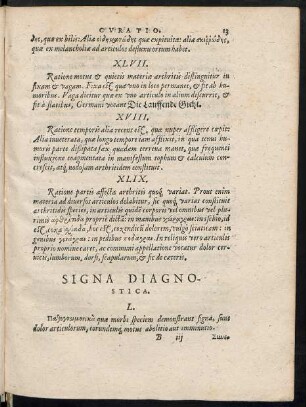 CVRATIO. 13
des, quæ ex bilis: Alia quæ ex pituita: alia
quæ ex melancholia ad articulos defluxu ortum habet.
XLVII.
Ratione motus & quietis materiæ arthritis distinguitur in
fixam & vagam. Fixa est quæ vno in loco permanet, &
Vaga dicitur quæ ex vno articulo in alium discurrit, &
fit à flatibus, Germani vocant Die Lauffende Gicht.
XVIII.
Ratione temporis alia recens est, quæ nuper affligere cœpit:
Alia inueterata, quæ longo tempore iam afflixit, in qua tenui humoris
parte dissipata fæx quædam terrea manet, quæ frequenti
influxione augmentata in manifestum tophum & calculum concrescit,
atque nodosam arthritidem constituit.
XLIX.
Ratione partis affectæ arthritis quoque variat. Prout enim
materia ad diuersos articulos delabitur, sic quoque varias constituit
arthritidis species, in articulis quidem corporis vel omnibus vel plurimis
proprie dicta: in manibus
est, coxendicis dolorem, vulgo sciaticam: in
genibus in pedibus In reliquis vero articulis
proprio nomine caret, ac communi appellatione vocatur dolor ceruicis,
lumborum, dorsi, scapularum, & sic de cæteris.
SIGNA DIAGNO-
STICA.
L.
quæ morbi speciem demonstrant signa, sunt
dolor articulorum, eorundemque motus abolitio aut imminutio.
B iij